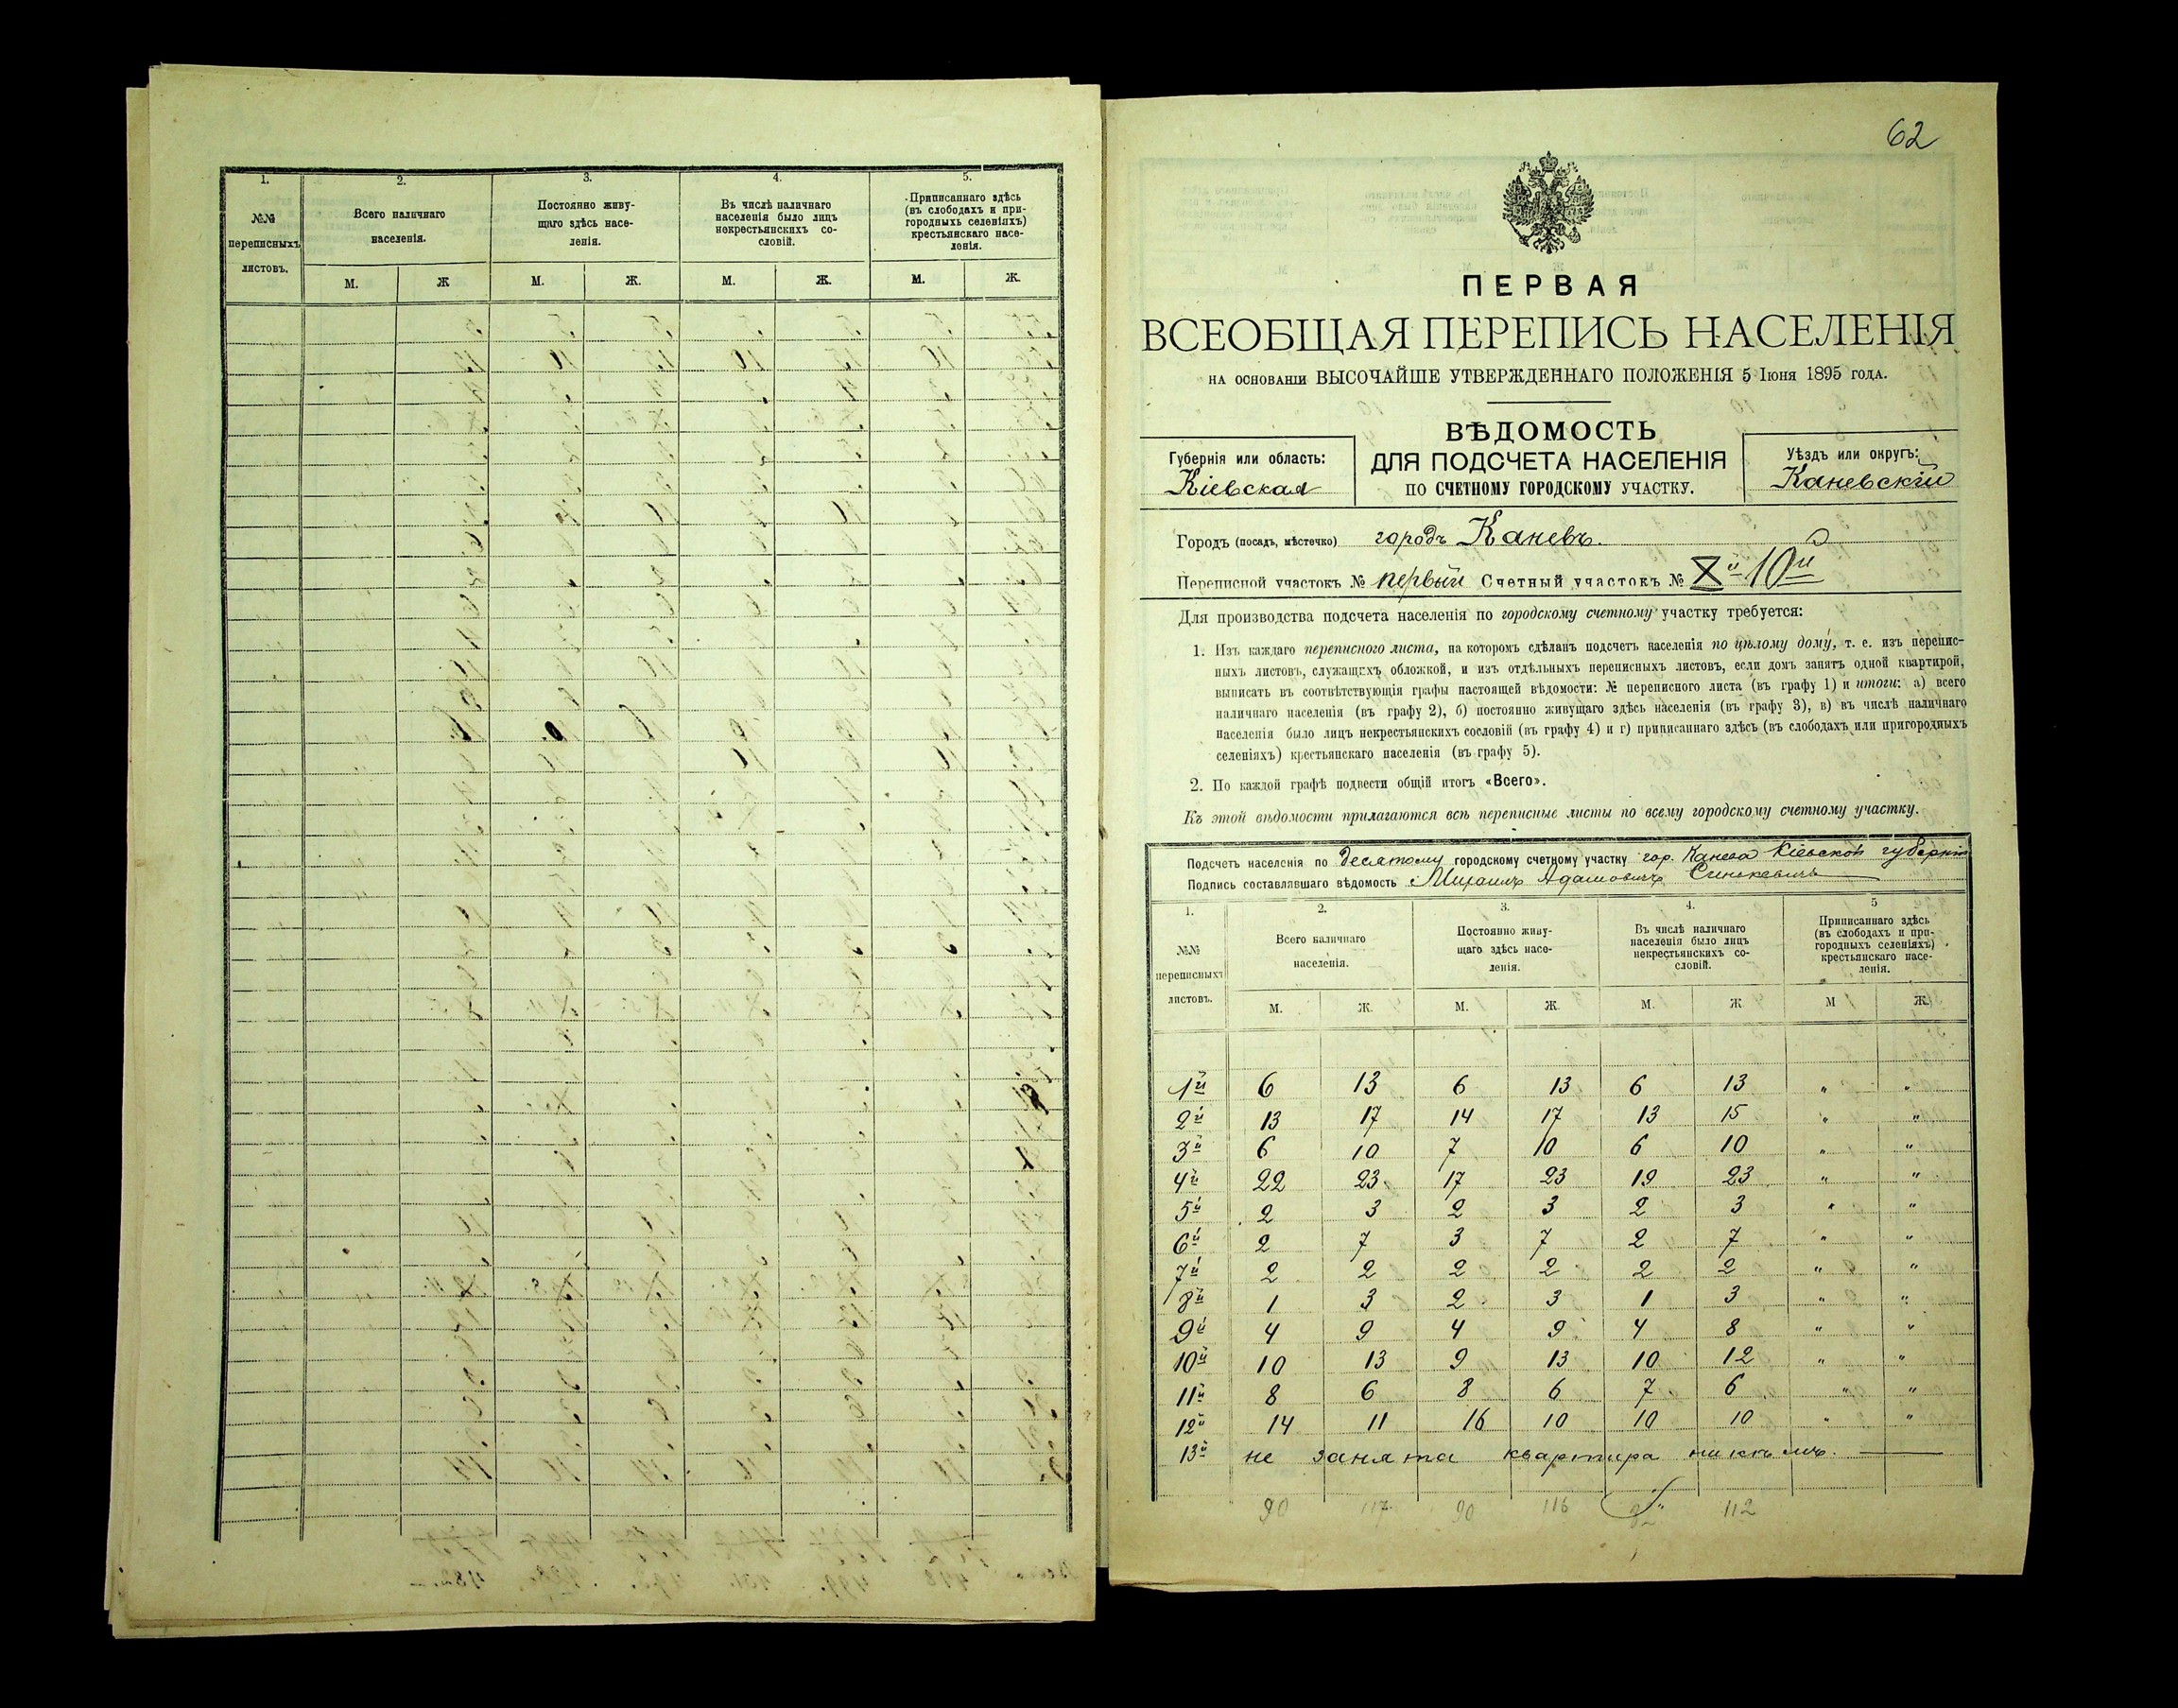 1. 2. 3. 4. 5.
№№ переписныхъ листовъ.
Всего наличнаго населенія.
Постоянно живу-
щаго здѣсь насе-
ленія.
Въ числѣ наличнаго
населенія было лицъ
некрестьянскихъ со-
словій.
Приписаннаго здѣсь
(въ слободахъ и при-
городныхъ селеніяхъ)
крестьянскаго насе-
ленія.
М. Ж М. Ж. М. Ж. М. Ж.
62
ПЕРВАЯ
ВСЕОБЩАЯ ПЕРЕПИСЬ НАСЕЛЕНІЯ
НА ОСНОВАНІИ ВЫСОЧАЙШЕ УТВЕРЖДЕННАГО ПОЛОЖЕНІЯ 5 Іюня 1895 ГОДА.
Губернія или область:
Кіевская
ВѢДОМОСТЬ
ДЛЯ ПОДСЧЕТА НАСЕЛЕНІЯ
ПО СЧЕТНОМУ ГОРОДСКОМУ УЧАСТКУ.
Уѣздъ или округъ:
Каневскій
Городъ (посадъ, мѣстечко) городъ Каневъ.
Переписной участокъ № первый Счетный участокъ № X й 10й
Для производства подсчета населенія по городскому счетному участку требуется:
1. Изъ каждаго переписного листа, на которомъ сдѣланъ подсчетъ населенія по цѣлому дому, т. е. изъ перепис-
ныхъ листовъ, служащихъ обложкой, и изъ отдѣльныхъ переписныхъ листовъ, если домъ занятъ одной квартирой,
выписать въ соотвѣтствующія графы настоящей вѣдомости: № переписного листа (въ графу 1) и итоги: а) всего
наличнаго населенія (въ графу 2), б) постоянно живущаго здѣсь населенія (въ графу 3), в) въ числѣ наличнаго
населенія было лицъ некрестьянскихъ сословій (въ графу 4) и г) приписаннаго здѣсь (въ слободахъ или пригородныхъ
селеніяхъ) крестьянскаго населенія (въ графу 5).
2. По каждой графѣ подвести общій итогъ «Всего».
Къ этой вѣдомости прилагаются всѣ переписные листы по всему городскому счетному участку.
Подсчетъ населенія по десятому городскому счетному участку гор. Канева Кіевской губерніи
Подпись составлявшаго вѣдомость Михаилъ Адамовичъ Синькевичъ
1. 2. 3. 4. 5
№№ переписныхъ листовъ.
Всего наличнаго населенія.
Постоянно живу-
щаго здѣсь насе-
ленія.
Въ числѣ наличнаго
населенія было лицъ
некрестьянскихъ со-
словій.
Приписаннаго здѣсь
(въ слободахъ и при-
городныхъ селеніяхъ)
крестьянскаго насе-
ленія.
М. Ж. М. Ж. М. Ж. М Ж.
1й 6 13 6 13 6 13 " "
2й 13 17 14 17 13 15 " "
3й 6 10 7 10 6 10 " "
4й 22 23 17 23 19 23 " "
5й 2 3 2 3 2 3 " "
6й 2 7 3 7 2 7 " "
7й 2 2 2 2 2 2 " "
8й 1 3 2 3 1 3 " "
9й 4 9 4 9 4 8 " "
10й 10 13 9 13 10 12 " "
11й 8 6 8 6 7 6 " "
12й 14 11 16 10 10 10 " "
13й не занята квартира никѣмъ.
90 117 90 116 82 112